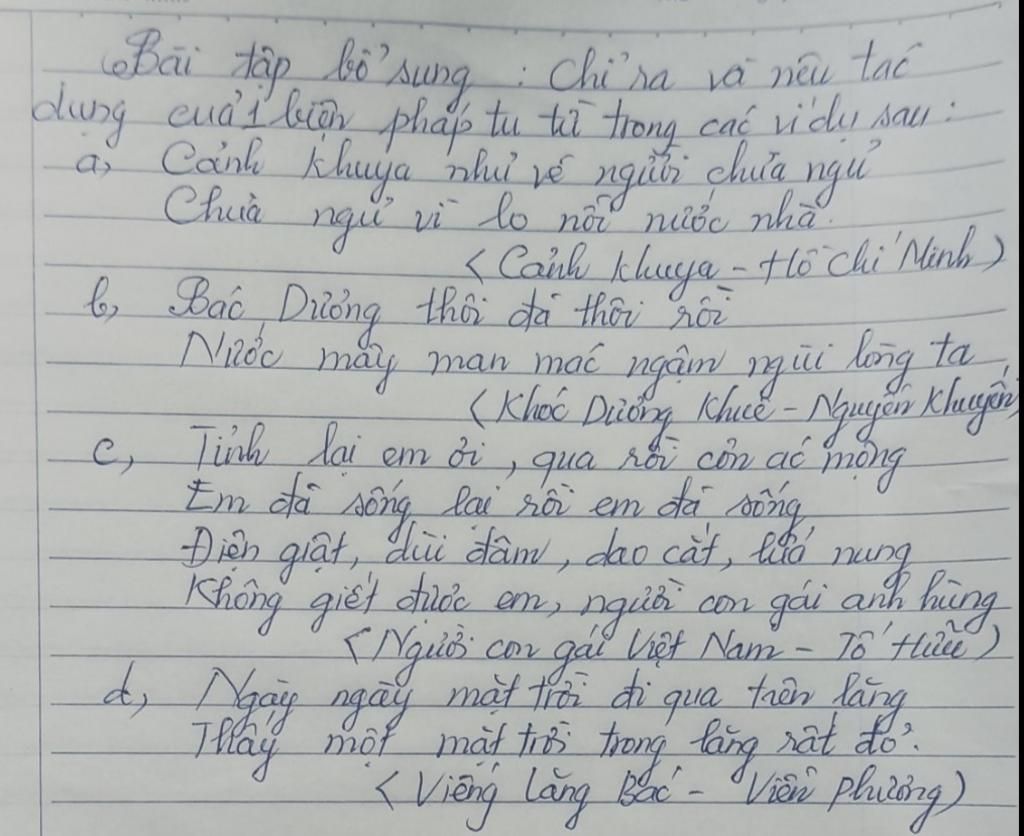 Bài tập bổ sung : Chỉ ra và nêu tác
dụng của 1 biện pháp tu từ trong các ví dụ sau :
a, Cảnh khuya như vẽ người chưa ngủ
Chưa ngủ vì lo nỗi nước nhà.
(Cảnh khuya - Hồ Chí Minh)
b, Bác Dương thôi đã thôi rồi
Nước mây man mác ngậm ngùi lòng ta
(Khóc Dương Khuê - Nguyễn Khuyến)
c, Tỉnh lại em ơi, qua rồi cơn ác mộng
Em đã sống lại rồi em đã sống
Điện giật, dùi đâm, dao cắt, lửa nung
Không giết được em, người con gái anh hùng
(Người con gái Việt Nam - Tố Hữu)
d, Ngày ngày mặt trời đi qua trên lăng
Thấy một mặt trời trong lăng rất đỏ.
(Viếng Lăng Bác - Viễn Phương)